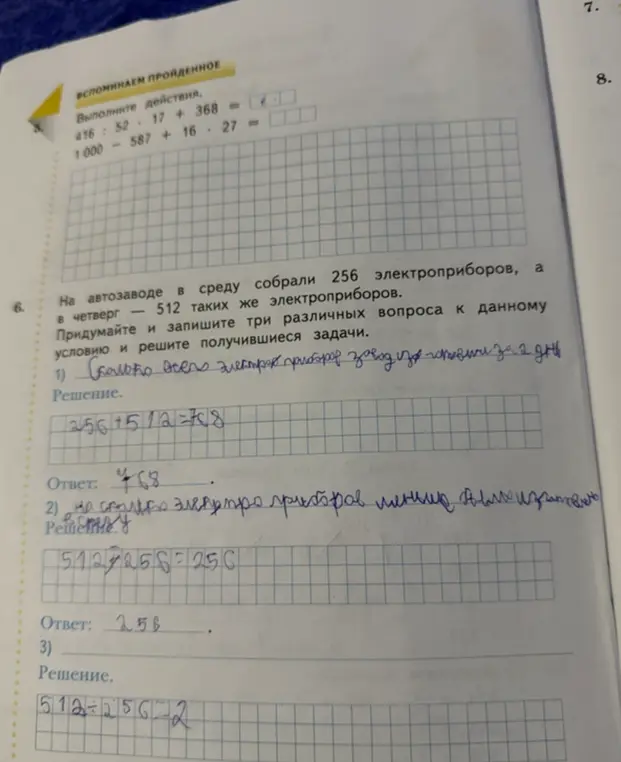 7.
8.
ВСПОМИНАЕМ ПРОЙДЕННОЕ
Выполните действия.
416 : 52 · 17 + 368 =
1 000 − 587 + 16 · 27 =
6. На автозаводе в среду собрали 256 электроприборов, а
в четверг — 512 таких же электроприборов.
Придумайте и запишите три различных вопроса к данному
условию и решите получившиеся задачи.
1) Сколько всего электроприборов завод изготовили за 2 дня
Решение.
256+512=768
Ответ: 768.
2) на сколько электро приборов меньше было изготовлено
в среду
Решение.
512-256=256
Ответ: 256.
3)
Решение.
512÷256=2